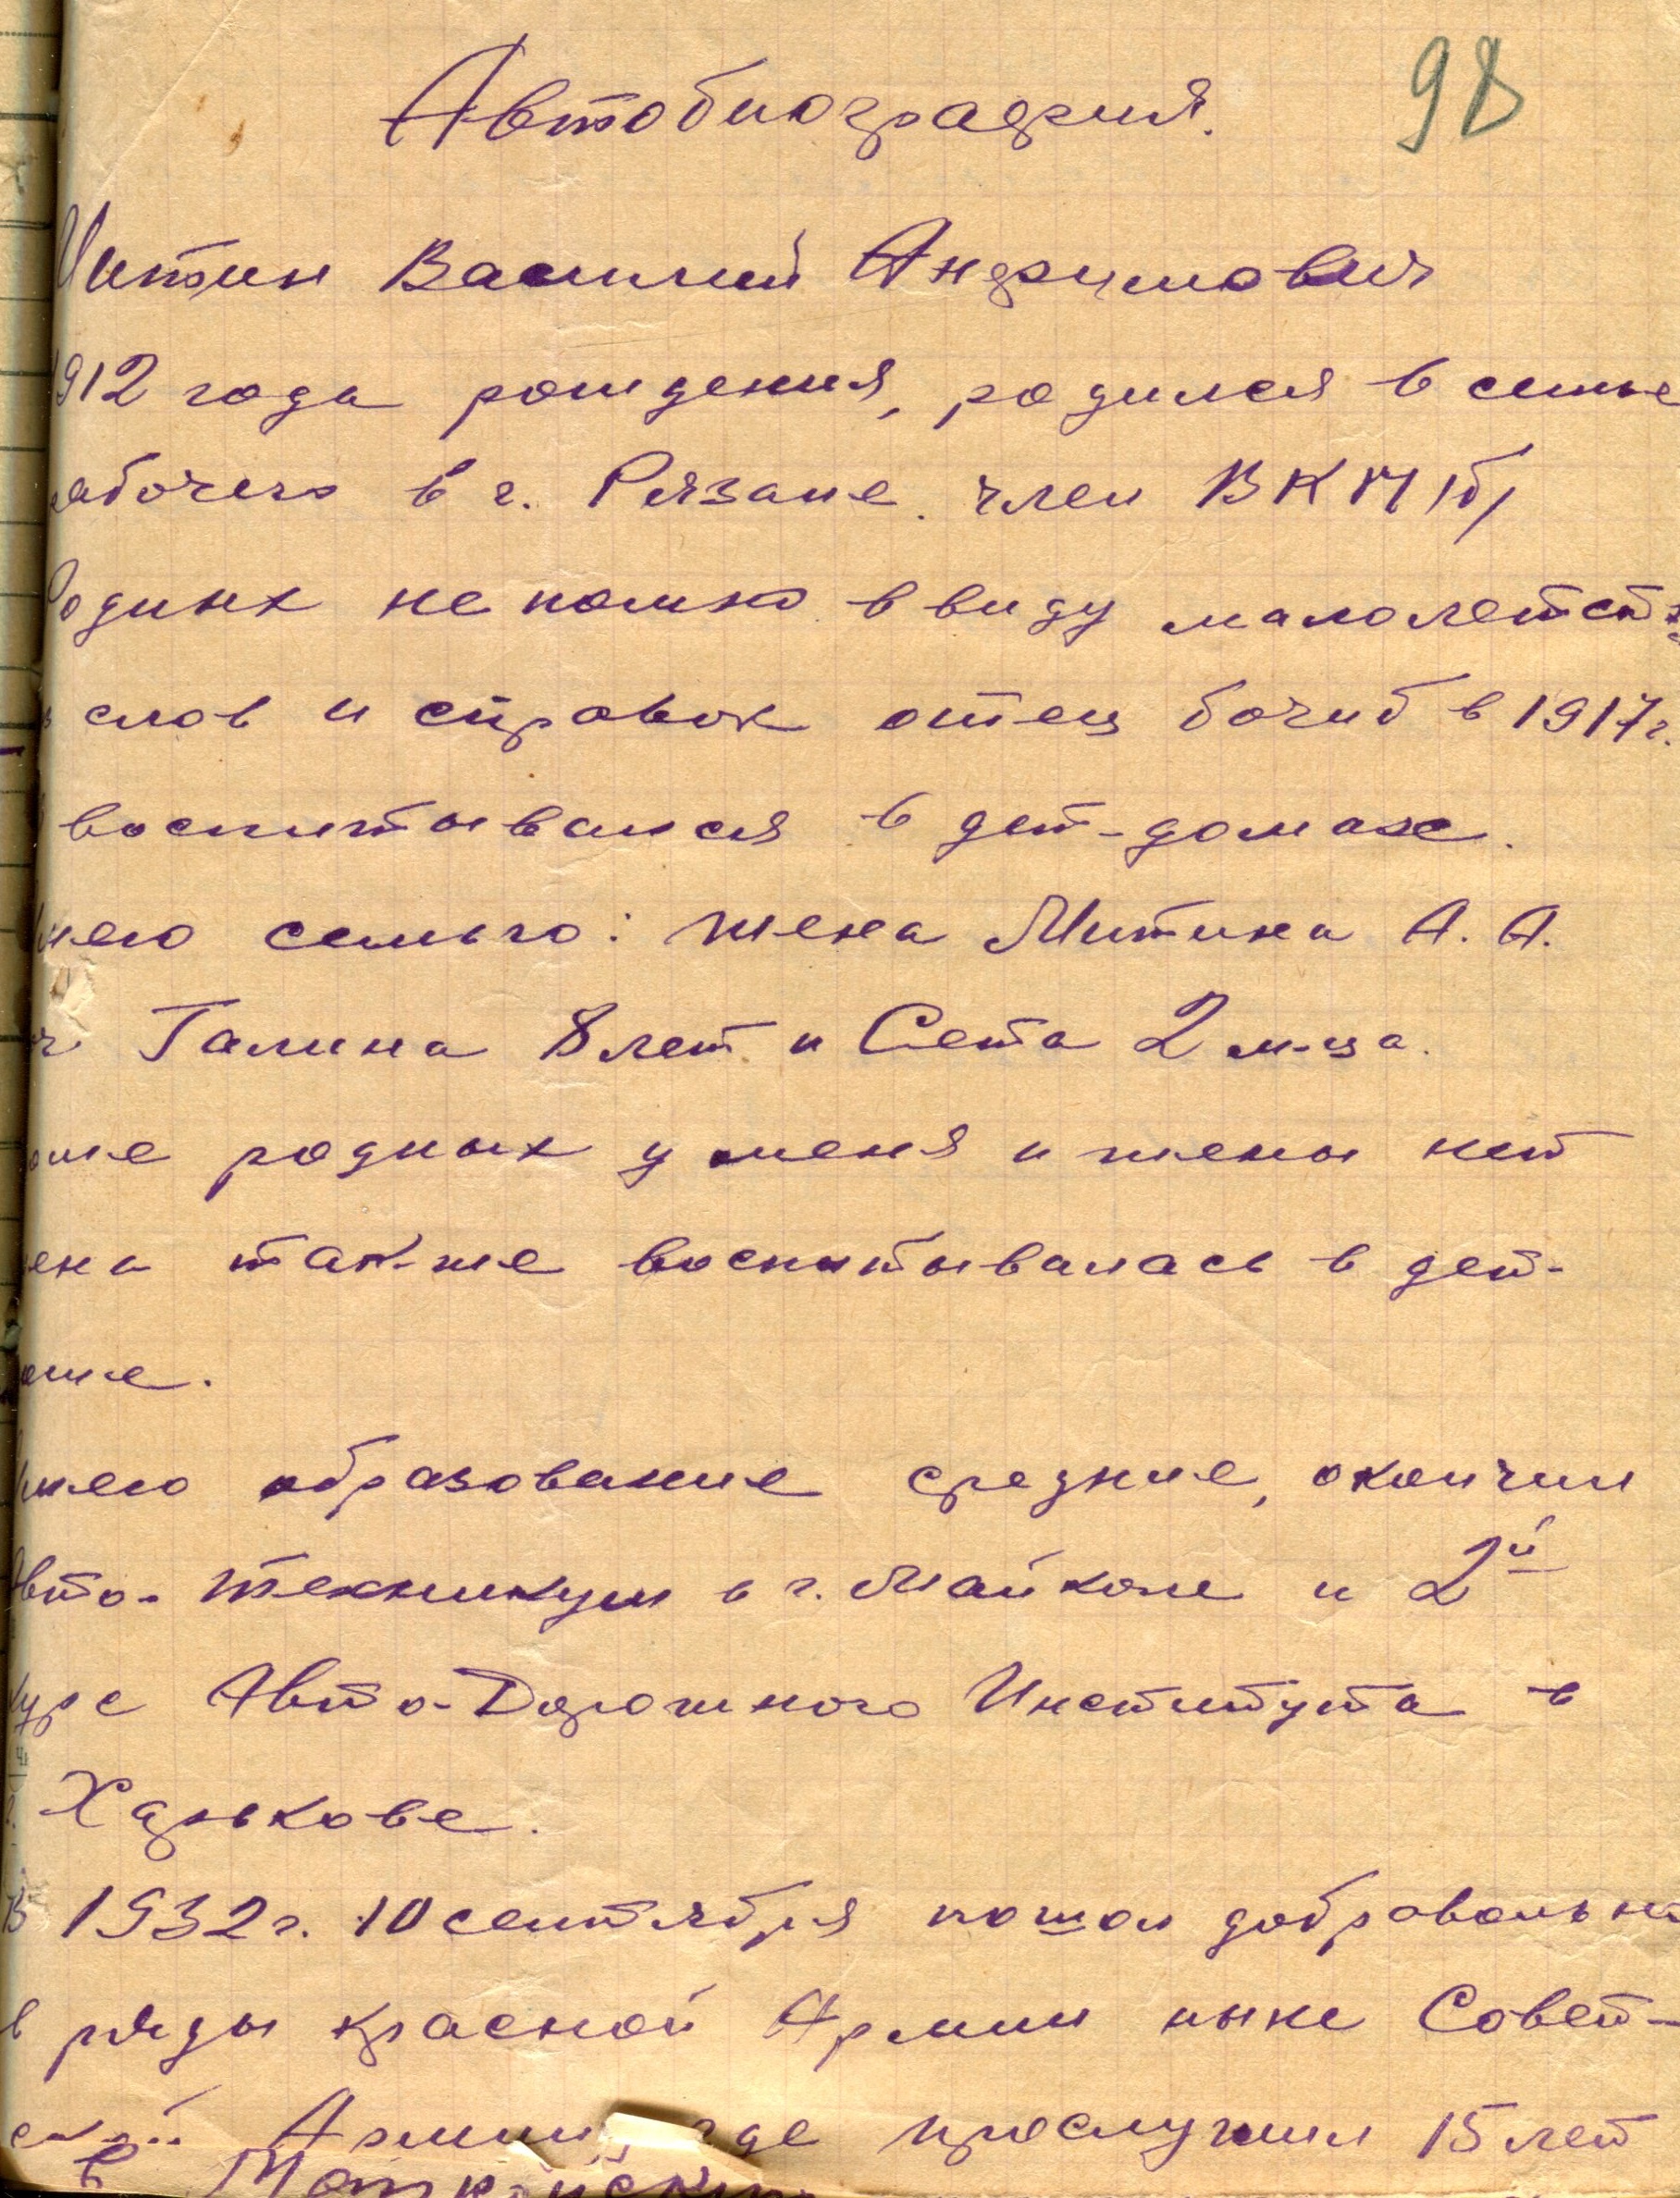 98
Автобиография.
Митин Василий Андрумович
1912 года рождения, родился в семье
рабочего в г. Рязане. член ВКП(б)
Родних не помню в виду малолетств
слов и справок отец погиб в 1917г.
воспитывался в дет-домах.
Имею семью: жена Митина А. А.
Галина 8 лет и Света 2 м-ца.
родных у меня и жены нет
жена так-же воспитывалась в дет-
доме.
Имею образование средние, окончил
Авто-техникум в г. Майкопе и 2й
курс Авто-Дорожного Института в
Харькове.
В 1932г. 10 сентября пошол доброволь но
в ряды красной Армии ныне Совет-
ской Армии, где прослужил 15 лет
в